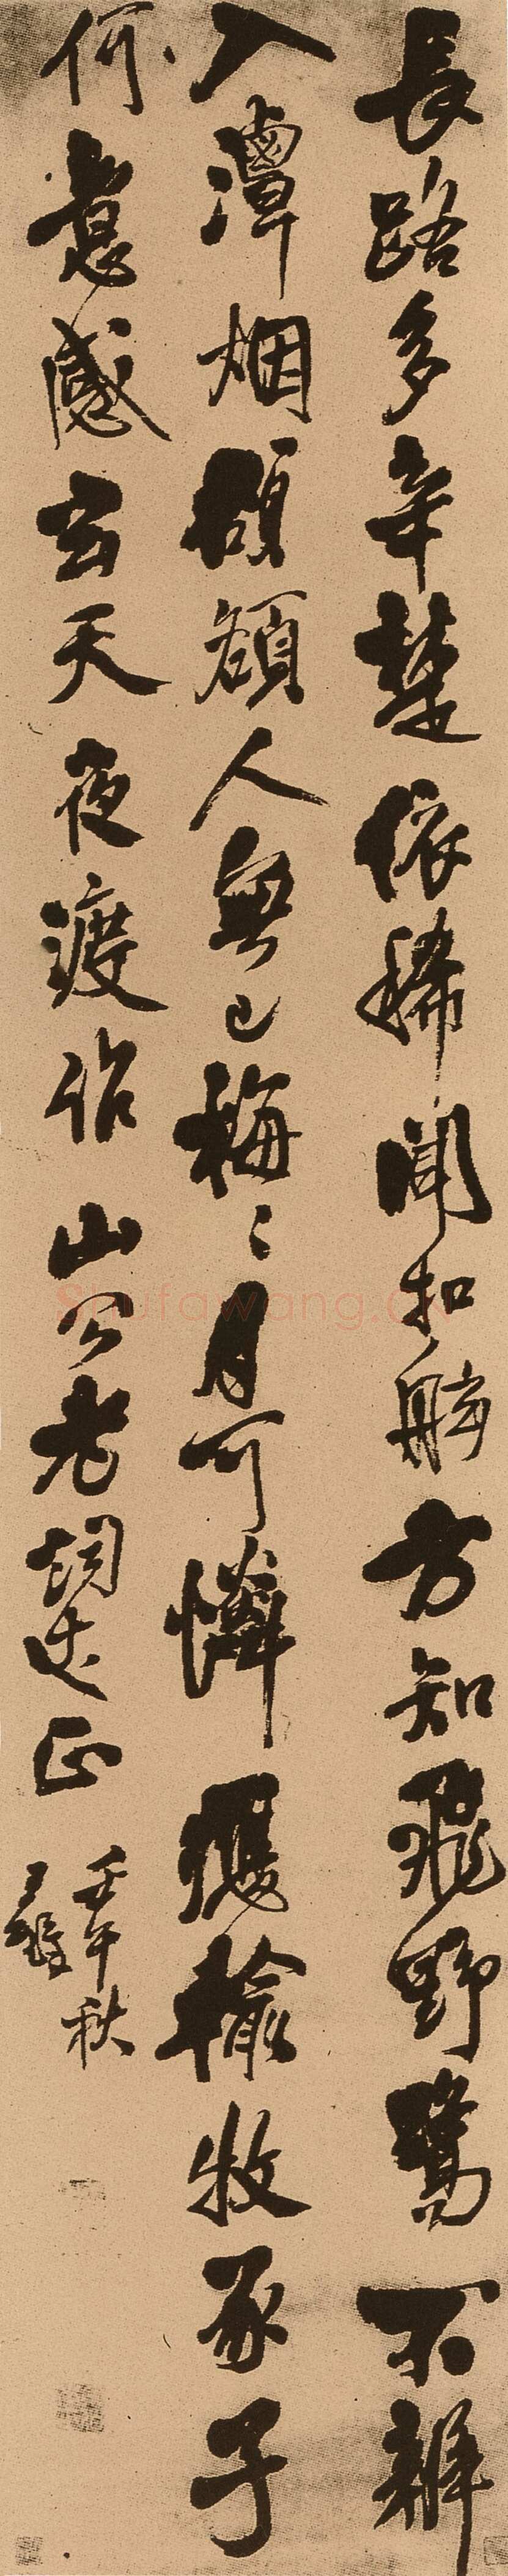 長路多辛楚依稀聞扣舷方知飛野鷺不辨
入潭烟頟頟人無已ミ月可憐獲輸牧豕子
何意感玄天夜渡作山公老詞正
壬午秋
王鐸
Shufawang.cn